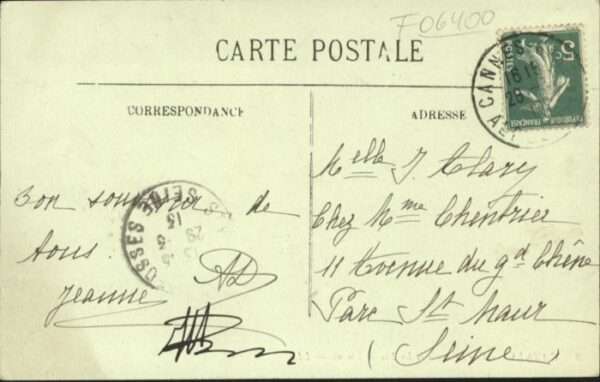 F06400
CARTE POSTALE
CORRESPONDANCE
ADRESSE
CANNES
5c
Bon souvenir de
tous.
Jeanne AD
FOSSES
SEINE
Melle J. Clary
Chez Mme Chentrier
11 Avenue du gd Chêne
Parc St Maur
(Seine)